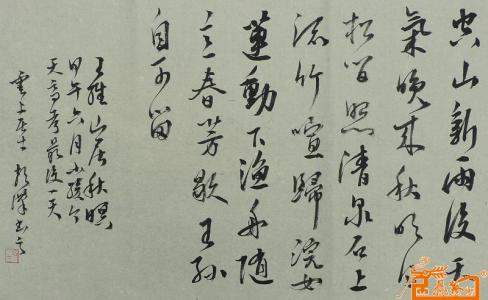 空山新雨後天
氣晚來秋明月
松間照清泉石上
流竹喧歸浣女
蓮動下漁舟隨
意春芳歇王孫
自可留
王維山居秋暝
甲午六月小孩今
天高考最後一天
雲上居士